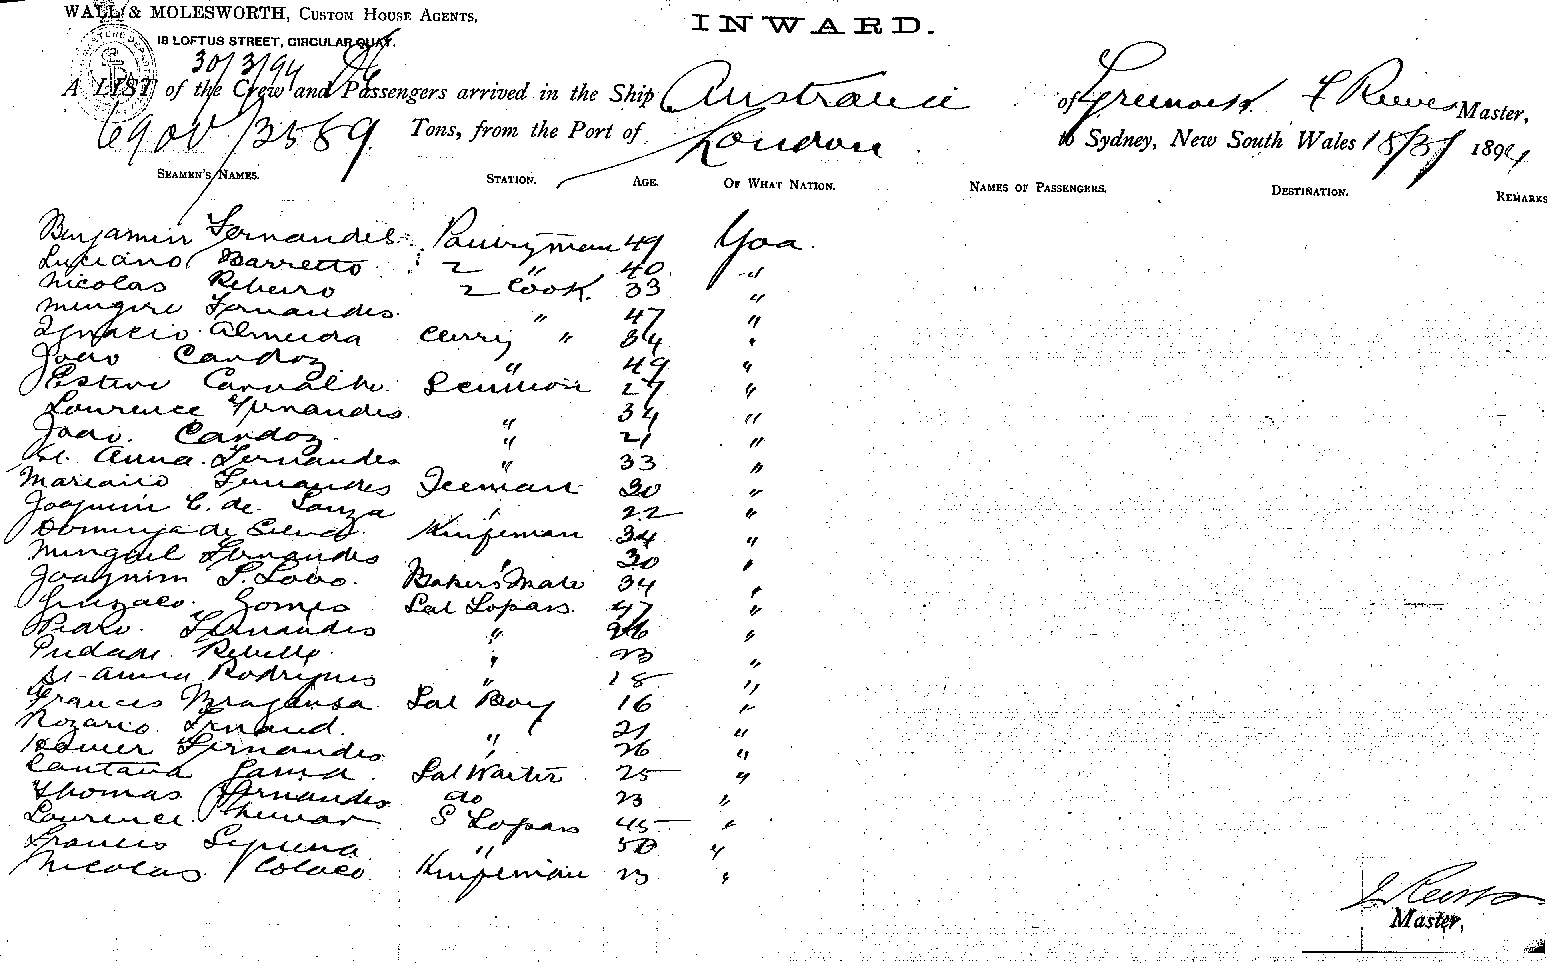 WALL & MOLESWORTH, CUSTOM HOUSE AGENTS,
INWARD.
18 LOFTUS STREET, CIRCULAR QUAY.
30/3/94
A LIST of the Crew and Passengers arrived in the Ship Australia of Greenock F Reeves Master,
6901/3589 Tons, from the Port of London to Sydney, New South Wales 1894
SEAMEN'S NAMES. STATION. AGE. OF WHAT NATION. NAMES OF PASSENGERS. DESTINATION. REMARKS
Benjamin Fernandes Pantryman 49 Goa
Luciano Barretto 2 " 40 "
Nicolas Rebeiro 2 Cook 33 "
Fernandes " 47 "
Ignacio Almeida Curry " 34 "
Joao Cardoz " 49 "
Carvalho Scullion 27 "
Lourence Fernandes " 34 "
Joao Cardoz " 21 "
St. Anna Fernandes " 33 "
Mariano Fernandes Iceman 30 "
Joaquim C. de Souza " 22 "
de Knifeman 34 "
Minguel Fernandes " 30 "
Joaquim S. Lobo Baker's Mate 34 "
Gonzalo Gomes Sal Topas 47 "
Pedro Fernandes " 26 "
Rebello " 23 "
St. Anna Rodrigues " 18 "
Frances Bragansa Sal Boy 16 "
Rozario " 21 "
Fernandes " 26 "
Santana Gama Sal Waiter 25 "
Thomas Fernandes do 23 "
Lourence S Topas 45 "
Francis " 50 "
Nicolas Colaco Knifeman 23 "
F Reeves
Master,